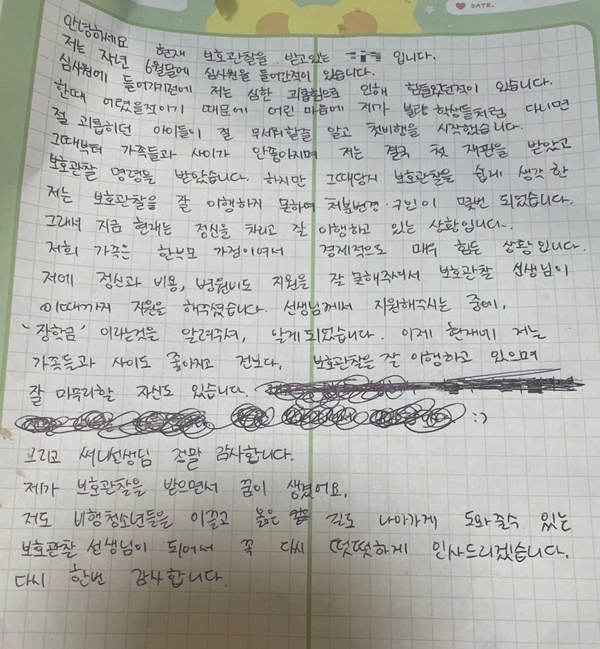 DATE.
안녕하세요
저는 작년 현재 보호관찰을 받고있는 입니다.
심사원에 6월달에 심사원을 들어간적이 있습니다.
들어가기전에 저는 심한 괴롭힘으로 인해 힘들었던적이 있습니다.
한때 어렸을적이기 때문에 어린 마음에 제가 불량학생들처럼 다니면
절 괴롭히던 아이들이 절 무서워할줄 알고 첫비행을 시작했습니다.
그때부터 가족들과 사이가 안좋아지며 저는 결국 첫 재판을 받았고
보호관찰 명령을 받았습니다. 하지만 그때당시 보호관찰을 쉽게 생각한
저는 보호관찰을 잘 이행하지 못하여 처분변경·구인이 몇번 되었습니다.
그래서 지금 현재는 정신을 차리고 잘 이행하고 있는 상황입니다.
저희 가족은 한부모 가정이여서 경제적으로 매우 힘든 상황입니다.
저에 정신과 비용, 병원비도 지원을 잘 못해주셔서 보호관찰 선생님이
이때까지 지원을 해주셨습니다. 선생님께서 지원해주시는 중에,
"장학금" 이라는것을 알려주셔, 알게되었습니다. 이제 현재에 저는
가족들과 사이도 좋아지고 전보다, 보호관찰을 잘 이행하고 있으며
잘 마무리할 자신도 있습니다.
:)
그리고 써니선생님 정말 감사합니다.
제가 보호관찰을 받으면서 꿈이 생겼어요.
저도 비행청소년들을 이끌고 옳은 길로 나아가게 도와줄수 있는
보호관찰 선생님이 되어서 꼭 다시 떳떳하게 인사드리겠습니다.
다시 한번 감사합니다.